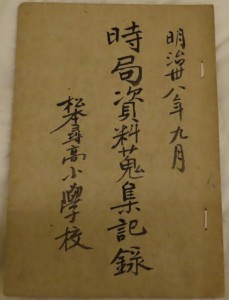 明治卅八年九月
時局資料蒐集記録
松本尋高小學校